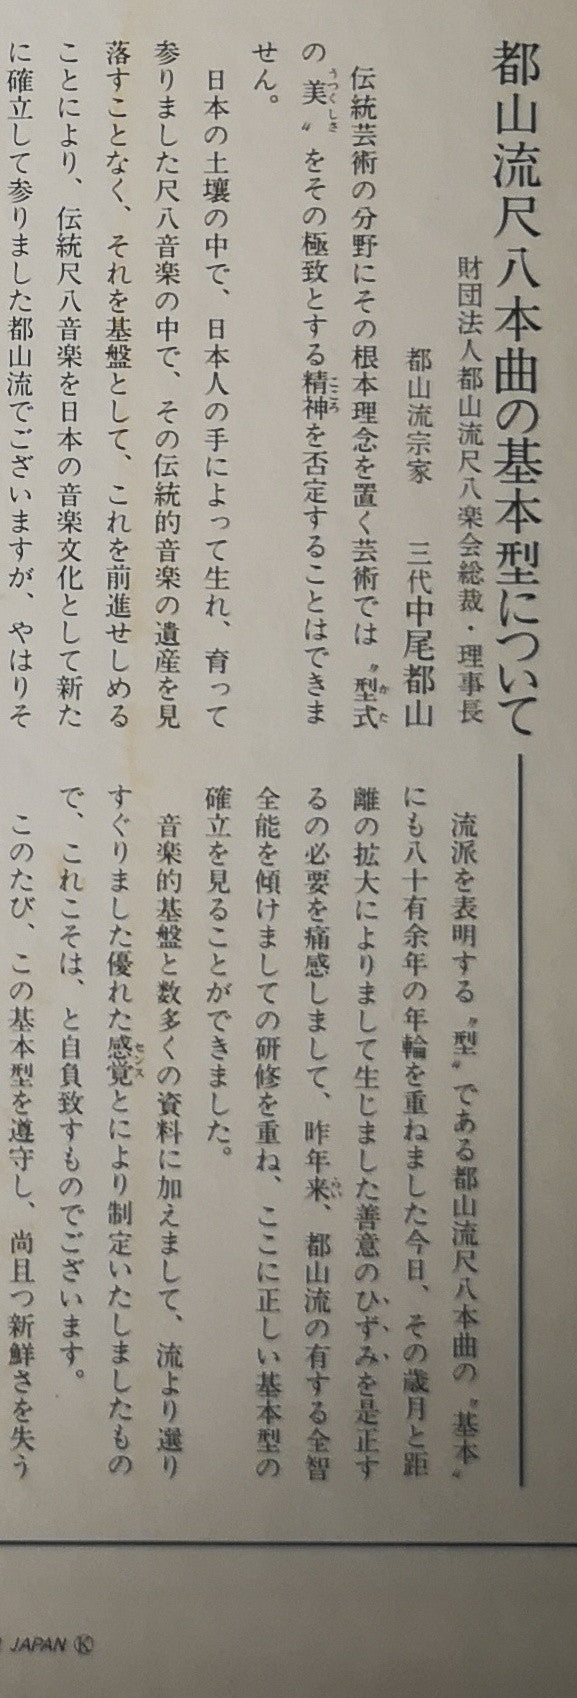 都山流尺八本曲の基本型について
財団法人都山流尺八楽会総裁・理事長
都山流宗家　三代中尾都山
伝統芸術の分野にその根本理念を置く芸術では〝型式
の〝美〟をその極致とする精神を否定することはできま
せん。
日本の土壌の中で、日本人の手によって生れ、育って
参りました尺八音楽の中で、その伝統的音楽の遺産を見
落すことなく、それを基盤として、これを前進せしめる
ことにより、伝統尺八音楽を日本の音楽文化として新た
に確立して参りました都山流でございますが、やはりそ
流派を表明する〝型〟である都山流尺八本曲の〝基本〟
にも八十有余年の年輪を重ねました今日、その歳月と距
離の拡大によりまして生じました善意のひずみを是正す
るの必要を痛感しまして、昨年来、都山流の有する全智
全能を傾けましての研修を重ね、ここに正しい基本型の
確立を見ることができました。
音楽的基盤と数多くの資料に加えまして、流より選り
すぐりました優れた感覚とにより制定いたしましたもの
で、これこそは、と自負致すものでございます。
このたび、この基本型を遵守し、尚且つ新鮮さを失う
JAPAN Ⓚ